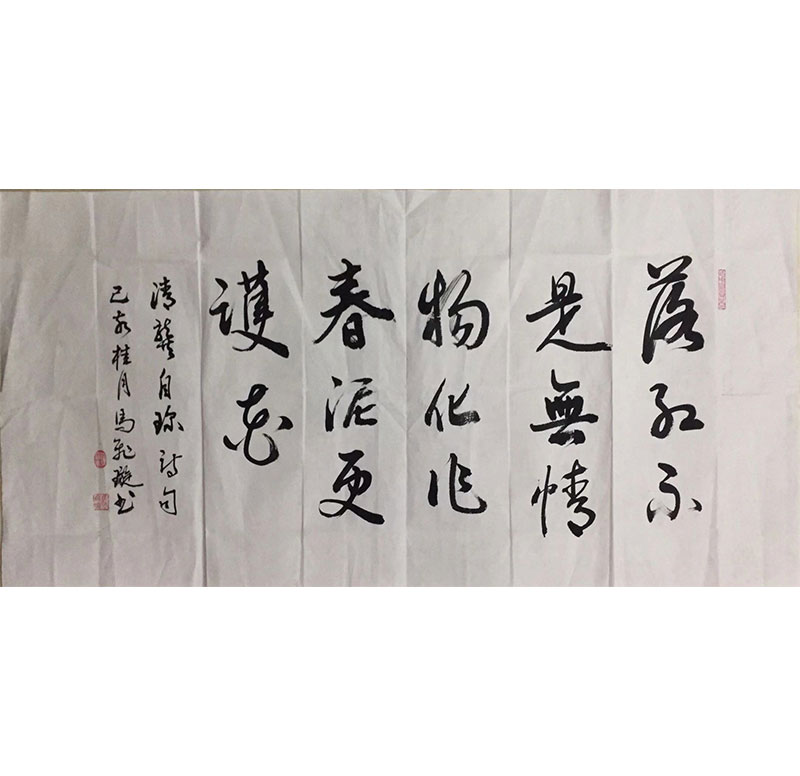 落紅不
是無情
物化作
春泥更
護花
清龔自珍詩句
己亥桂月馬飛璇書